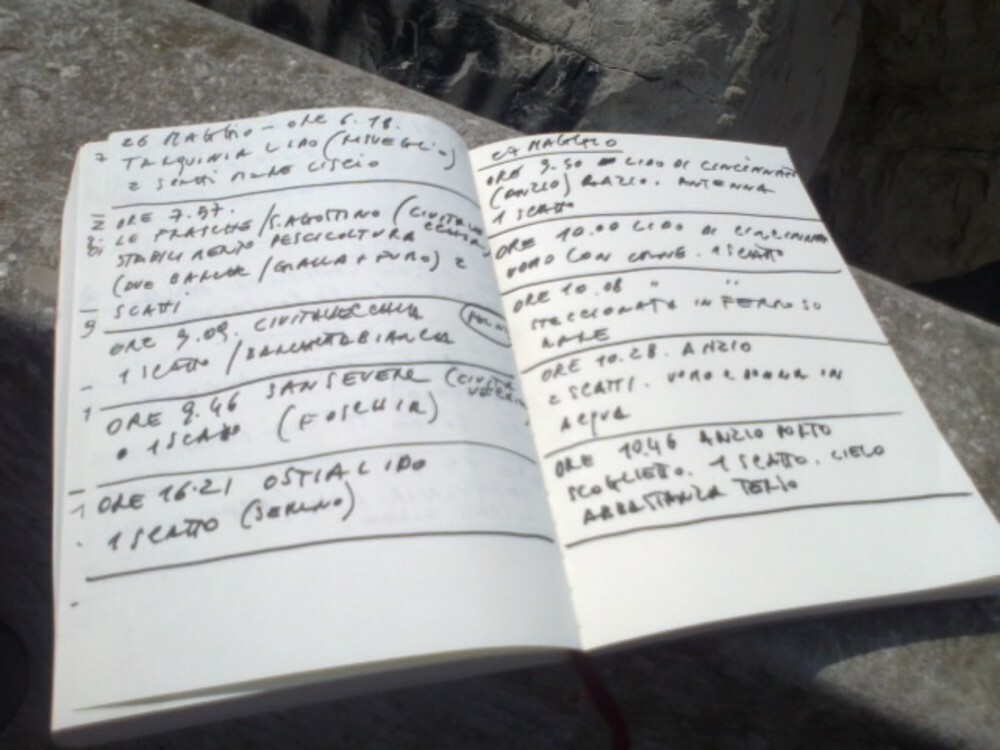 26 MAGGIO - ORE 6.18.
TARQUINIA LIDO (RISVEGLIO)
2 SCATTI MARE LISCIO
ORE 7.57.
LE FRASCHE / S.AGOSTINO (CIVITA
STABILIMENTO PESCICOLTURA
(DUE BARCHE / GIALLA + FURO) 2
SCATTI
ORE 9.09. CIVITAVECCHIA
1 SCATTO / BARCHETTA BIANCA
ORE 9.46 SAN SEVERA (CIVITA
VECCHIA
1 SCATTO (FOSCHIA)
ORE 16.21 OSTIA LIDO
1 SCATTO (SERENO)
27 MAGGIO
ORE 9.50 LIDO DI CINCINNATO
(ANZIO) LAZIO. ANTENNA
1 SCATTO
ORE 10.00 LIDO DI CINCINNATO
UOMO CON CANE. 1 SCATTO
ORE 10.08 " "
STACCIONATA IN FERRO SU
MARE
ORE 10.28. ANZIO
2 SCATTI. UOMO E DONNA IN
ACQUA
ORE 10.46 ANZIO PORTO
SCOGLIETTO. 1 SCATTO. CIELO
ABBASTANZA TERSO